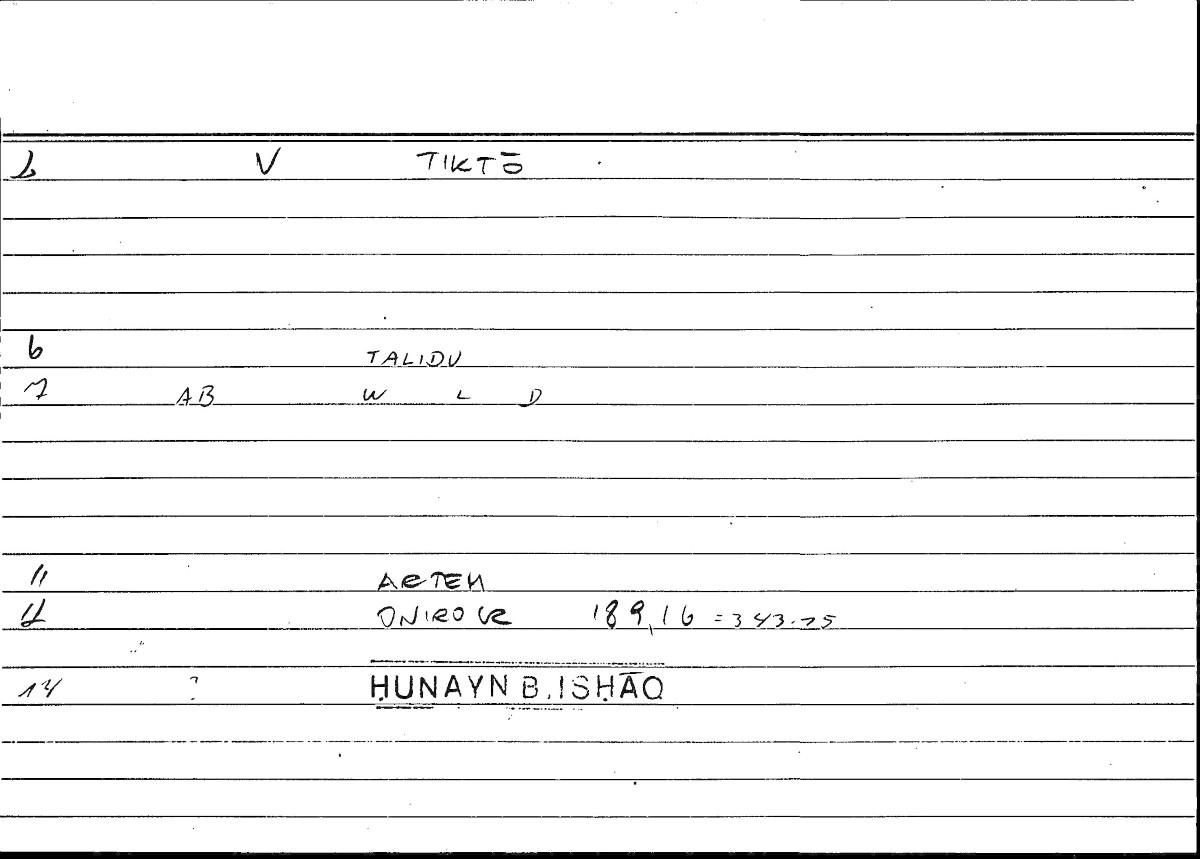 1 V TIKTŌ
6 TALIDU
7 AB W L D
11 ARTEM
12 ONIROCR 189,16 = 343.15
14 ? ḤUNAYN B. ISḤĀQ